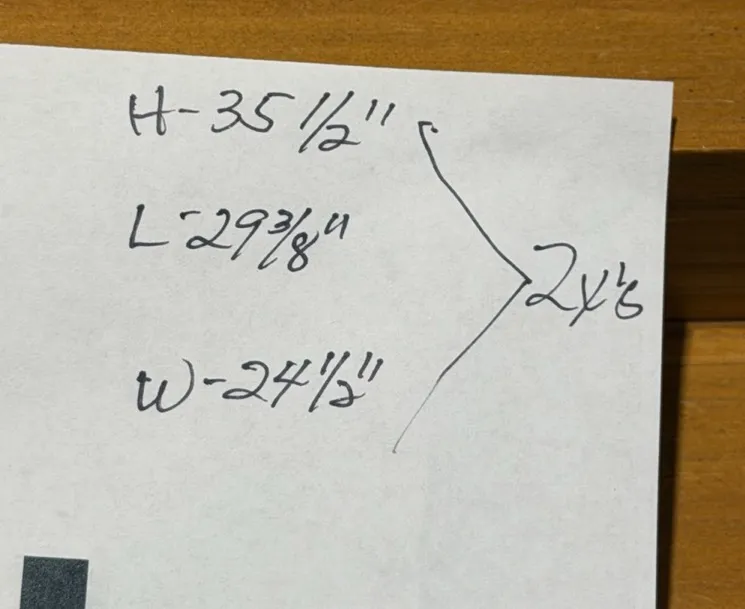 H-35 1/2"
L-29 3/8"
2x's
W-24 1/2"